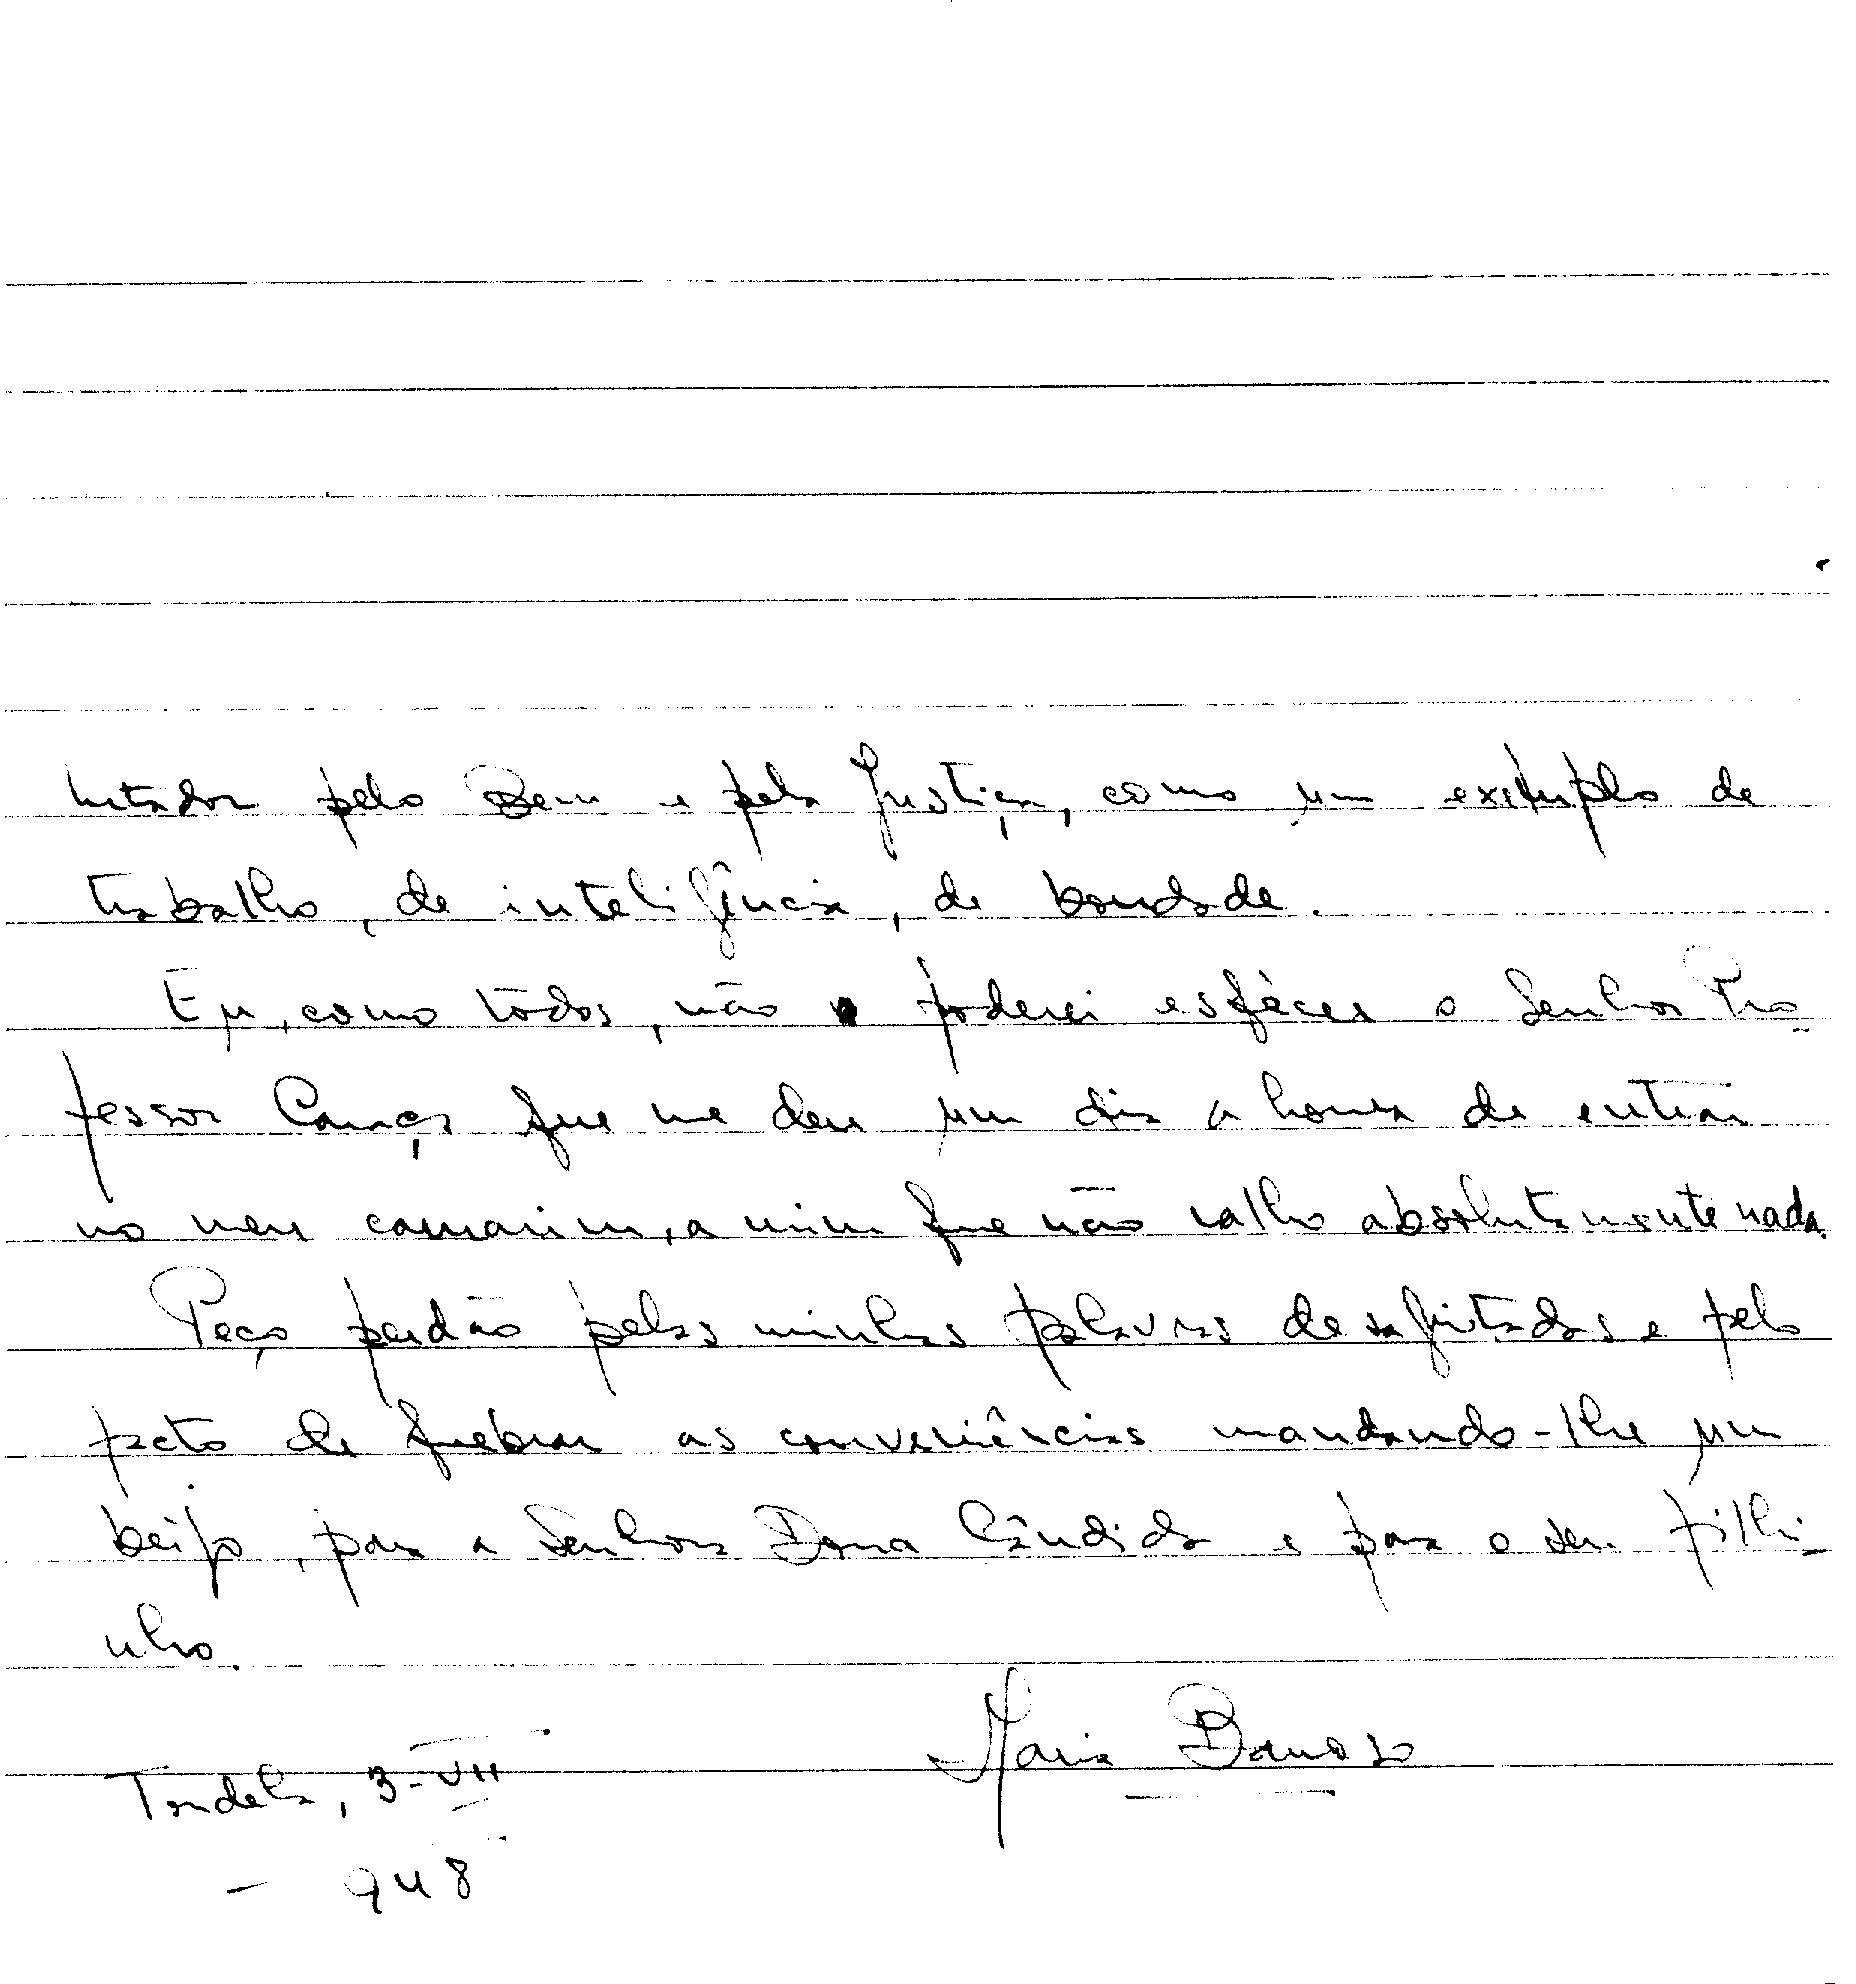 lutador pelo Bem e pela Justiça, como um exemplo de
trabalho, de inteligência, de bondade.
Eu, como todos, não poderei esquecer o Senhor Pro-
fessor Caraça que me deu um dia a honra de entrar
no meu camarim, a mim que não valho absolutamente nada.
Peço perdão pelas minhas palavras desajeitadas e pelo
facto de quebrar as conveniências mandando-lhe um
beijo, para a Senhora Dona Cândida e para o seu filhi-
nho.
Maria Barroso
Tondela, 3-VII
- 948